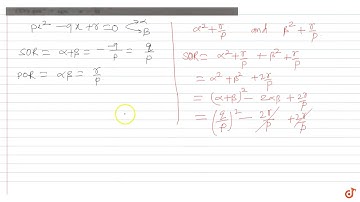 px² - qx + r = 0 α β
SOR = α+β = - -q/p = q/p
POR = αβ = r/p
α² + r/p and β² + r/p
SOR = α² + r/p + β² + r/p
= α² + β² + 2r/p
= (α+β)² - 2αβ + 2r/p
= (q/p)² - 2r/p + 2r/p